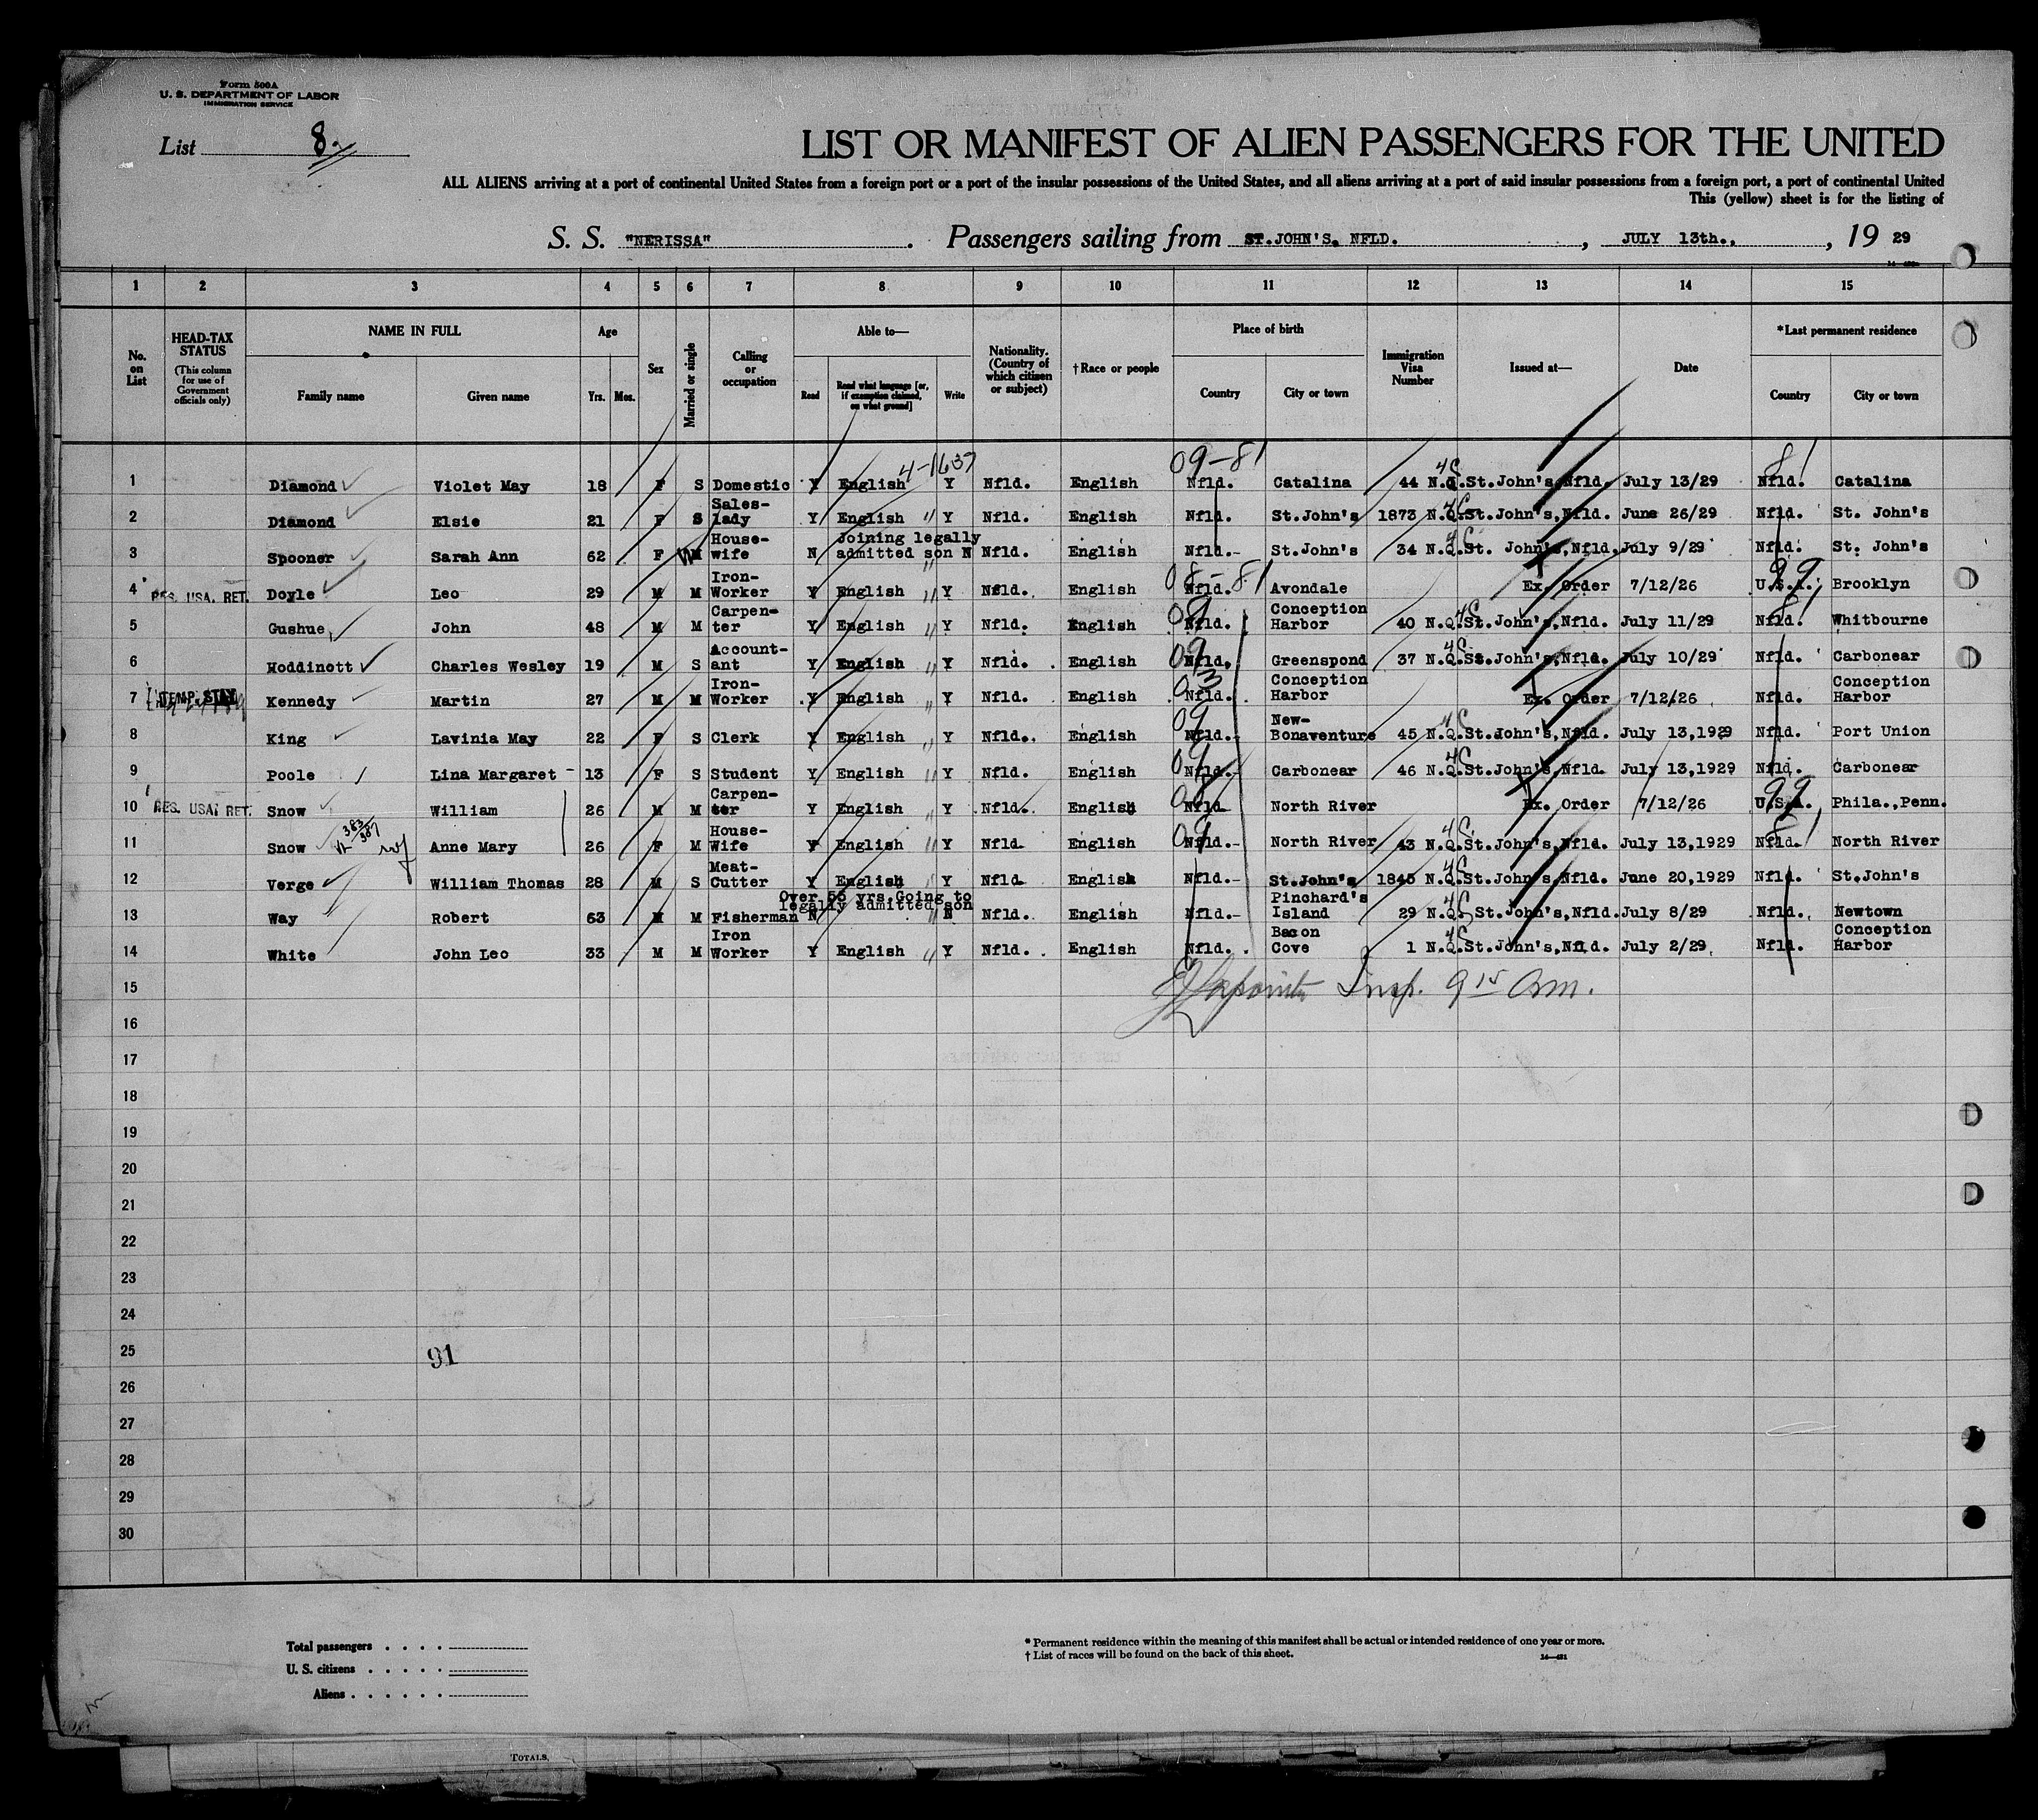 Form 500A
U. S. DEPARTMENT OF LABOR
IMMIGRATION SERVICE
List 8
LIST OR MANIFEST OF ALIEN PASSENGERS FOR THE UNITED
ALL ALIENS arriving at a port of continental United States from a foreign port or a port of the insular possessions of the United States, and all aliens arriving at a port of said insular possessions from a foreign port, a port of continental United
This (yellow) sheet is for the listing of
S. S. "NERISSA". Passengers sailing from ST.JOHN'S. NFLD., JULY 13th., , 19 29
1 2 3 4 5 6 7 8 9 10 11 12 13 14 15
No. on List
HEAD-TAX STATUS (This column for use of Government officials only)
NAME IN FULL Family name Given name
Age Yrs. Mos.
Sex
Married or single
Calling or occupation
Able to— Read Read what language [or, if exemption claimed, on what ground] Write
Nationality. (Country of which citizen or subject)
†Race or people
Place of birth Country City or town
Immigration Visa Number
Issued at—
Date
*Last permanent residence Country City or town
4-1637 09-81 81
1 Diamond Violet May 18 F S Domestic Y English Y Nfld. English Nfld. Catalina 44 N.Q. St.John's,Nfld. July 13/29 Nfld. Catalina
2 Diamond Elsie 21 F S Sales-lady Y English " Y Nfld. English Nfld. St.John's 1873 N.Q. St.John's,Nfld. June 26/29 Nfld. St. John's
3 Spooner Sarah Ann 62 F House-wife N Joining legally admitted son N Nfld. English Nfld.- St.John's 34 N.Q. St. John's,Nfld. July 9/29 Nfld. St. John's
4 RES. USA. RET. Doyle Leo 29 M M Iron-Worker Y English " Y Nfld. English Nfld. Avondale Ex. Order 7/12/26 U.S.A. Brooklyn
5 Gushue John 48 M M Carpen-ter Y English " Y Nfld. English Nfld. Conception Harbor 40 N.Q. St.John's,Nfld. July 11/29 Nfld. Whitbourne
6 Hoddinott Charles Wesley 19 M S Account-ant Y English " Y Nfld. English Nfld. Greenspond 37 N.Q. St.John's,Nfld. July 10/29 Nfld. Carbonear
7 TEMP. STAY Kennedy Martin 27 M M Iron-Worker Y English " Y Nfld. English Nfld. Conception Harbor Ex. Order 7/12/26 Nfld. Conception Harbor
8 King Lavinia May 22 F S Clerk Y English " Y Nfld. English Nfld.- New-Bonaventure 45 N.Q. St.John's,Nfld. July 13,1929 Nfld. Port Union
9 Poole Lina Margaret 13 F S Student Y English " Y Nfld. English Nfld.- Carbonear 46 N.Q. St.John's,Nfld. July 13,1929 Nfld. Carbonear
10 RES. USA. RET. Snow William 26 M M Carpen-ter Y English " Y Nfld. English Nfld North River Ex. Order 7/12/26 U.S.A. Phila.,Penn.
11 Snow Anne Mary 26 F M House-Wife Y English " Y Nfld English Nfld.- North River 43 N.Q. St.John's,Nfld. July 13,1929 Nfld. North River
12 Verge William Thomas 28 M S Meat-Cutter Y English " Y Nfld English Nfld.- St.John's 1845 N.Q. St.John's,Nfld. June 20,1929 Nfld. St.John's
13 Way Robert 63 M M Fisherman N Over 55 yrs.Going to legally admitted son N Nfld. English Nfld.- Pinchard's Island 29 N.Q. St.John's,Nfld. July 8/29 Nfld. Newtown
14 White John Leo 33 M M Iron Worker Y English " Y Nfld. English Nfld. Bacon Cove 1 N.Q. St.John's,Nfld. July 2/29 Nfld. Conception Harbor
15 Insp. 9 15 am.
16
17
18
19
20
21
22
23
24
25
91
26
27
28
29
30
Total passengers . . . .
U. S. citizens . . . . .
Aliens . . . . . .
* Permanent residence within the meaning of this manifest shall be actual or intended residence of one year or more.
† List of races will be found on the back of this sheet.
14—481
TOTALS,